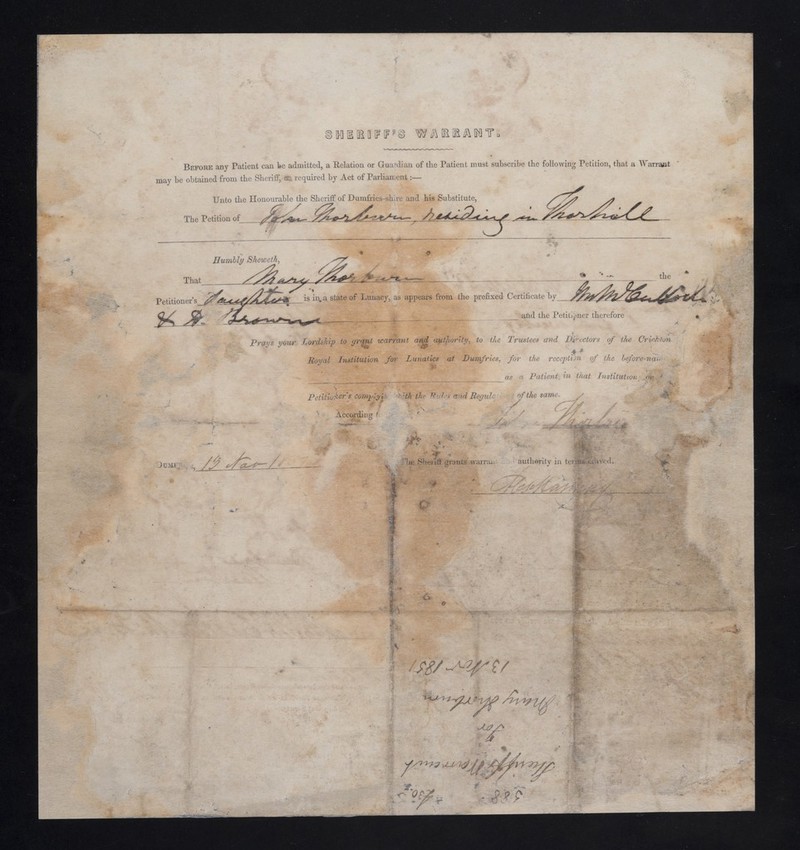 SHERIFF'S WARRANT.
BEFORE any Patient can be admitted, a Relation or Guardian of the Patient must subscribe the following Petition, that a Warrant
may be obtained from the Sheriff, as required by Act of Parliament :—
Unto the Honourable the Sheriff of Dumfries-shire and his Substitute,
The Petition of John Thorburn, residing in Thornhill
Humbly Sheweth,
That Mary Thorburn the
Petitioner's Daughter is in a state of Lunacy, as appears from the prefixed Certificate by
& Brown and the Petitioner therefore
Prays your Lordship to grant warrant and authority, to the Trustees and Directors of the Crichton
Royal Institution for Lunatics at Dumfries, for the reception of the before-nam
as a Patient in that Institution,
Petitioner's complying with the Rules and Regula of the same.
According t
DUM 13 Nov The Sheriff grants warra authority in terms craved.
388
Sheriff's Warrant
For
Mary Thorburn
13 Nov 1851